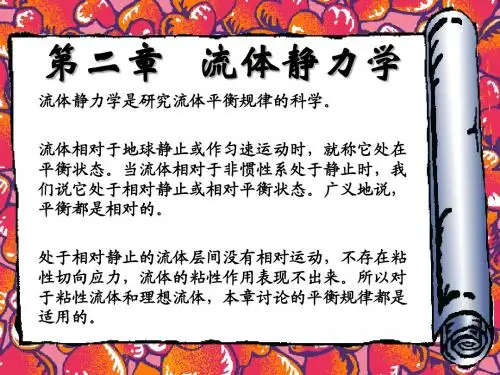 第二章 流体静力学
流体静力学是研究流体平衡规律的科学。
流体相对于地球静止或作匀速运动时，就称它处在
平衡状态。当流体相对于非惯性系处于静止时，我
们说它处于相对静止或相对平衡状态。广义地说，
平衡都是相对的。
处于相对静止的流体层间没有相对运动，不存在粘
性切向应力，流体的粘性作用表现不出来。所以对
于粘性流体和理想流体，本章讨论的平衡规律都是
适用的。